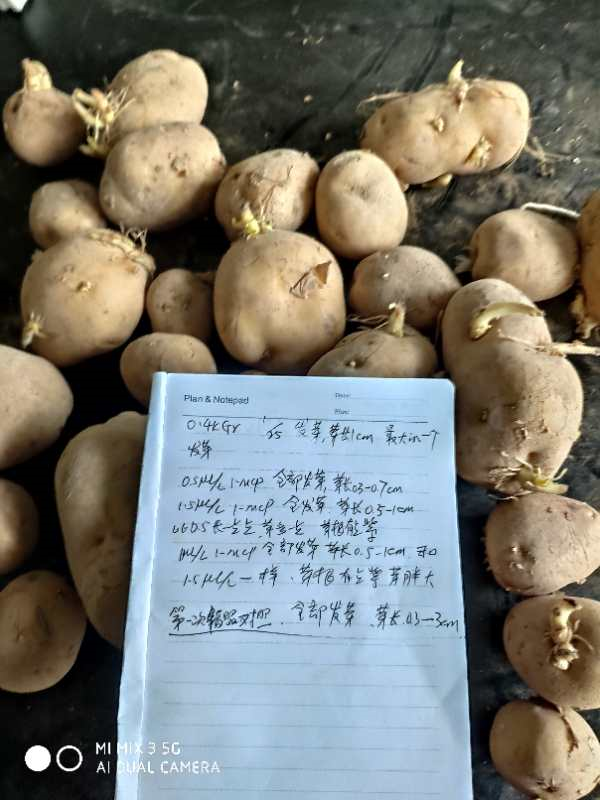 Plan & Notepad
Date:
Plan:
0.4KGr 1/5 发芽,芽长1cm 最大的一个
发芽
0.5μl/L 1-mcp 全部发芽 芽长0.3-0.7cm
1.5μl/L 1-mcp 全发芽 芽长0.5-1cm
比0.5长一点点,芽多一点 芽粗壮等
1μl/L 1-mcp 全部发芽 芽长0.5-1cm 和
1.5μl/L一样、芽根有点等 芽胖大
第一次辐照对照、全部发芽、芽长0.3-3cm
MI MIX 3 5G
AI DUAL CAMERA